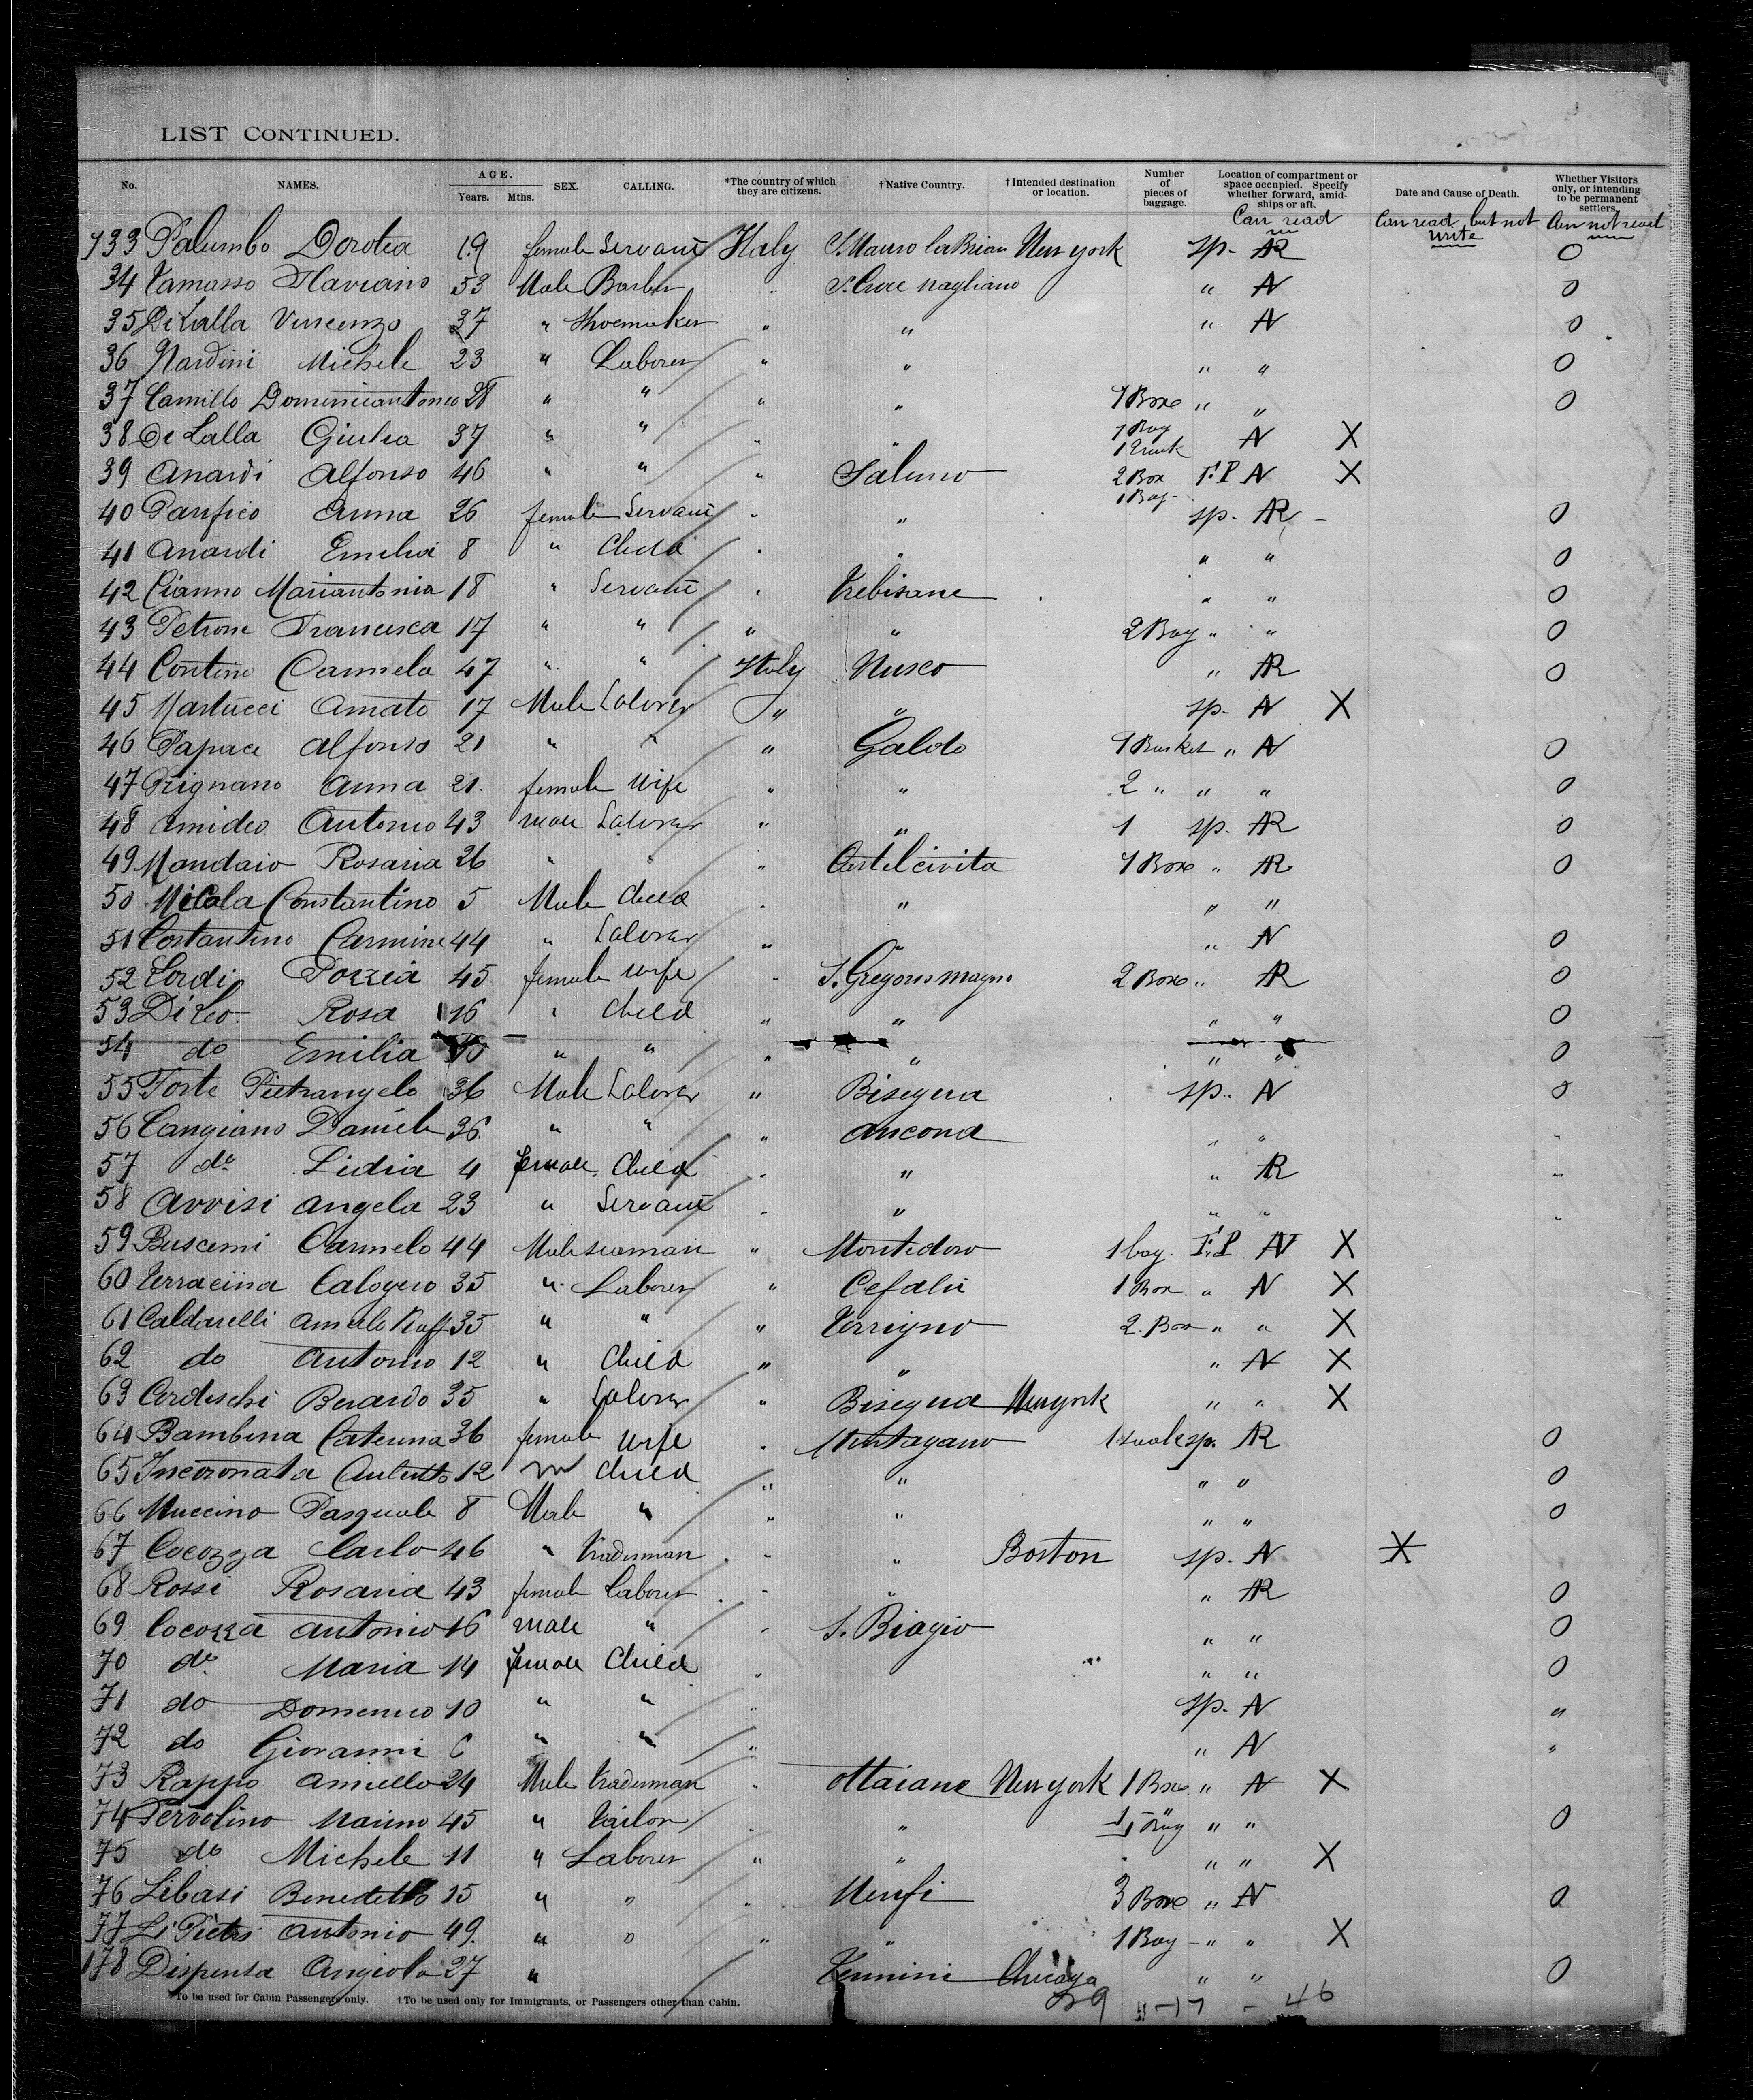 LIST CONTINUED.
No. NAMES. AGE. Years. Mths. SEX. CALLING. *The country of which they are citizens. †Native Country. †Intended destination or location. Number of pieces of baggage. Location of compartment or space occupied. Specify whether forward, amidships or aft. Date and Cause of Death. Whether Visitors only, or intending to be permanent settlers.
Can read Can read but not write Can not read
133 Palumbo Dorotea 19 female Servant Italy S. Mauro New york sp. AR O
34 Tamasso 53 Male Barber " " N O
35 Di Lalla Vincenzo 37 " Shoemaker " " " N O
36 Nardini Michele 23 " Laborer " " " " O
37 Camillo Domenicantonio 28 " " " " 1 Box " " O
38 De Lalla Giulia 37 " " " " 1 Bag 1 Trunk N X
39 Anardi Alfonso 46 " " " Salerno 2 Box 1 Bag F.P N X
40 Anna 26 female Servant " " sp. AR O
41 Anardi Emelia 8 " Child " " " " O
42 Cianno Mariantonia 18 " Servant " Trebisane " " O
43 Petrone Francesca 17 " " " " 2 Bag " " O
44 Contino Carmela 47 " " Italy Nusco " AR O
45 Martucci Amato 17 Male Laborer " " sp. N X
46 Papace Alfonso 21 " " " Galdo 1 Basket " N O
47 Prignano Anna 21. female Wife " " 2 " " " O
48 Amideo Antonio 43 male Laborer " " 1 sp. AR O
49 Mandaio Rosaria 26 " " " Castelcivita 1 Box " AR O
50 Nicola Constantino 5 Male Child " " " "
51 Costantino Carmine 44 " Laborer " " " N O
52 Lordi Porzia 45 female Wife " S. Gregorio magno 2 Box " AR O
53 Di Leo Rosa 16 " Child " " " " O
54 do Emilia 10 " " " " " " O
55 Forte Pietrangelo 36 Male Laborer " Bisegna sp. N O
56 Cangiano Daniele 36. " " " Ancona " " "
57 do Lidia 4 female Child " " " AR "
58 Avvisi Angela 23 " Servant " " " " "
59 Buscemi Carmelo 44 Male seaman " Montedoro 1 bag. F.P N X
60 Terracina Calogero 35 " Laborer " Cefalu 1 Box " N X
61 Caldarelli 35 " " " Torrigno 2 Box " " X
62 do Antonio 12 " Child " " " N X
63 Cerdeschi Berardo 35 " Laborer " Bisegna New york " " X
64 Bambina Caterina 36 female Wife " Montagano 1 sack sp. AR O
65 Incoronata 12 " Child " " " " O
66 Muccino Pasquale 8 Male " " " " " O
67 Cocozza Carlo 46 " Tradesman " " Boston sp. N X
68 Rossi Rosaria 43 female Laborer " " " AR O
69 Cocozza Antonio 16 male " " S. Biagio " " O
70 do Maria 14 female Child " " " O
71 do Domenico 10 " " " sp. N "
72 do Giovanni 6 " " " " N "
73 Rappo Aniello 24 Male Tradesman " Ottaiano New york 1 Box " N X
74 Pervolino 45 " Tailor " " 1 Bag " " O
75 do Michele 11 " Laborer " " " " X
76 Libasi Benedetto 15 " " " Menfi 3 Box " N O
77 Li Pietri Antonio 49. " " " " 1 Bag " " X
178 Dispensa Angiola 27 " Termini Chicago " " O
*To be used for Cabin Passengers only. †To be used only for Immigrants, or Passengers other than Cabin.
29 17 - 46